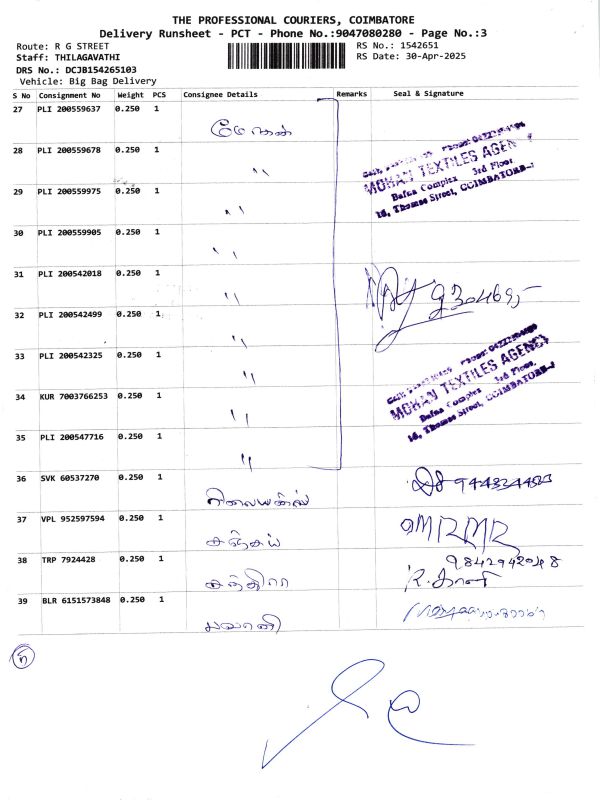 THE PROFESSIONAL COURIERS, COIMBATORE
Delivery Runsheet - PCT - Phone No.:9047080280 - Page No.:3
Route: R G STREET
RS No.: 1542651
Staff: THILAGAVATHI
RS Date: 30-Apr-2025
DRS No.: DCJB154265103
Vehicle: Big Bag Delivery
S No Consignment No Weight PCS Consignee Details Remarks Seal & Signature
27 PLI 200559637 0.250 1 மோகன்
28 PLI 200559678 0.250 1 "
29 PLI 200559975 0.250 1 "
MOHAN TEXTILES AGENCY
Bafna Complex 3rd Floor,
16, Thomas Street, COIMBATORE-1
30 PLI 200559905 0.250 1 "
31 PLI 200542018 0.250 1 "
32 PLI 200542499 0.250 1 "
33 PLI 200542325 0.250 1 "
34 KUR 7003766253 0.250 1 "
MOHAN TEXTILES AGENCY
Bafna Complex 3rd Floor,
16, Thomas Street, COIMBATORE-1
35 PLI 200547716 0.250 1 "
36 SVK 60537270 0.250 1
37 VPL 952597594 0.250 1 சஞ்சய்
38 TRP 7924428 0.250 1 சந்திரா
9842942048
39 BLR 6151573848 0.250 1 பவானி